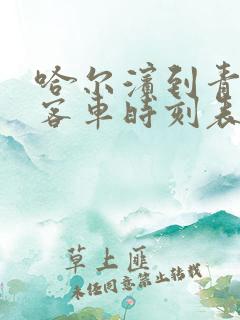 哈尔滨到青
客车时刻表
草上匪
未经同意禁止转载